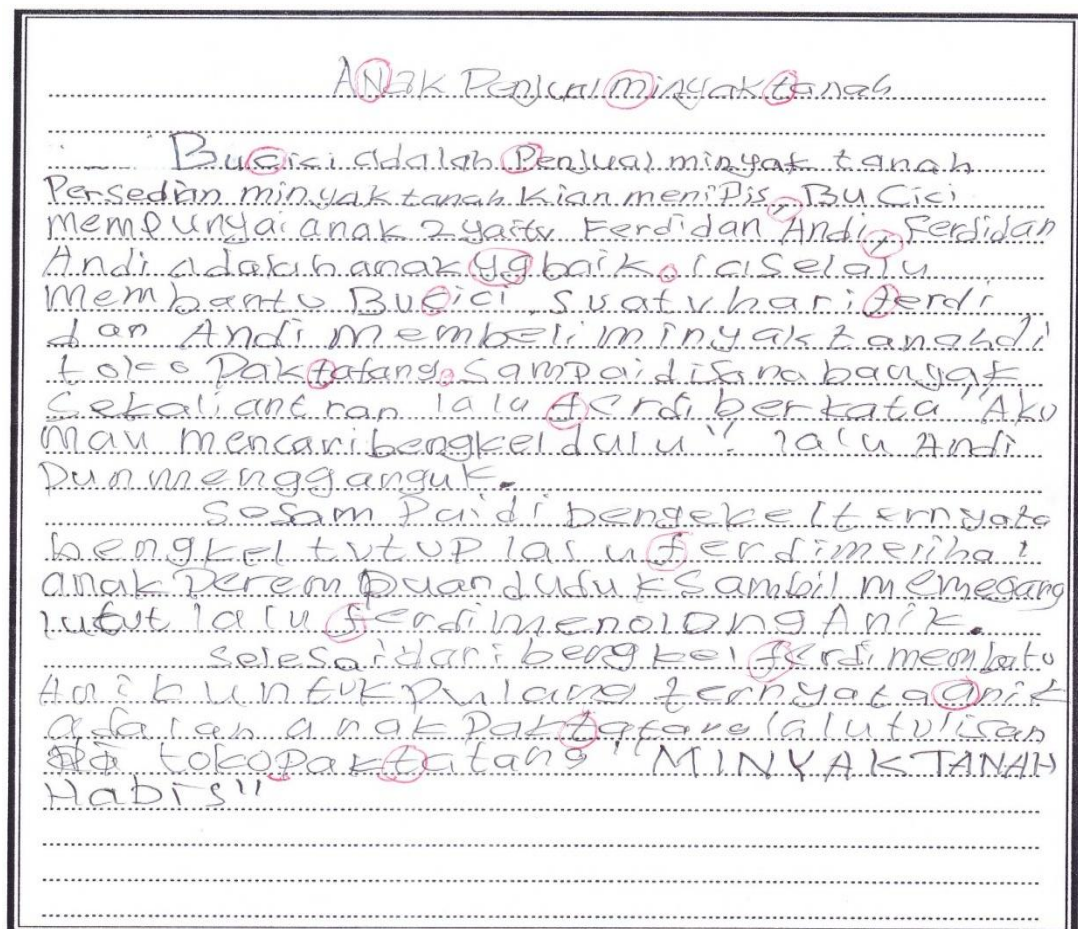 ANak Penjual minyak tanah
Bu cici adalah Penjual minyak tanah
Persedian minyak tanah kian meniPis, Bu Cici
mempunyai anak 2 yaitu Ferdi dan Andi, Ferdi dan
Andi adalah anak yg baik. ia selalu
membantu Bu cici, suatu hari ferdi
dan Andi membeli minyak tanah di
toko Pak tatang. Sampai disana banyak
sekali antran lalu ferdi berkata "Aku
mau mencari bengkel dulu". lalu Andi
Pun mengganguk.
Sesam Pai di bengekel ternyata
bengkel tutup lalu ferdi melihat
anak Perempuan duduk sambil memegang
lutut lalu ferdi menolong Anik.
selesai dari bengkel ferdi membatu
Anik untuk pulang ternyata anik
adalah anak Pak tatang lalu tulisan
di toko pak tatang "MINYAK TANAH
Habis"